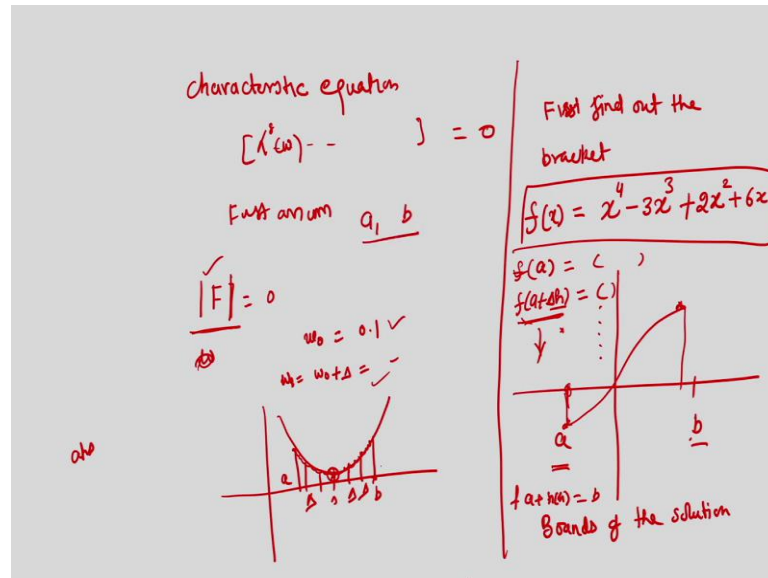 characterstic equation
[λ⁸(ω) - - ] = 0
First assum a, b
|F| = 0
ω₀ = 0.1 ✓
ω₁ = ω₀+Δ =
a Δ Δ Δ Δ b
First find out the
bracket
f(x) = x⁴-3x³+2x²+6x
f(a) = ( )
f(a+Δh) = ( )
a b
f a+h(n) = b
Bounds of the solution